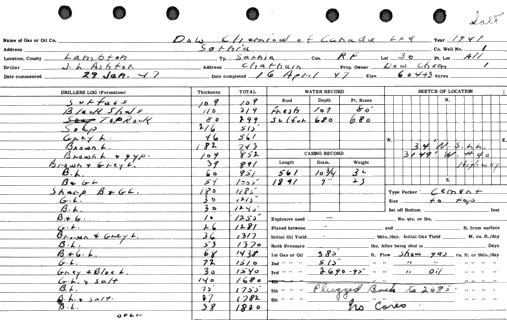 Salt
Name of Gas or Oil Co. Dow Chemical of Canada Ltd Year 1947
Address Sarnia Co. Well No. 1
Location, County Lambton Tp. Sarnia Con. RF Lot 30 Pt. Lot All
Driller J.L. Ashton Address Chatham Prop. Owner Dow Chem 1
Date commenced 29 Jan. 47 Date completed 16 April 47 Elev. 604.43 Acres
DRILLERS LOG (Formation) Thickness TOTAL WATER RECORD SKETCH OF LOCATION
Surface 109 109 Kind Depth Ft. Raises N.
Black Shale 110 219 Fresh 109 80'
Top Rock 80 299 Sulfur 680 680
Soap 216 515
Grey L. 46 561
Brown L. 182 743
Brown L & gyp. 109 852 CASING RECORD
Brown & Grey L. 39 891 Length Diam. Weight
B.L. 60 951 561 10 3/4 32
B & GL 54 1005 1891 7" 23
Sharp B & GL. 180 1185 Type Packer Cement
G.L. 30 1215 Size to top
B.L. 30 1245 Set off Bottom feet
B & G. 10 1255 Explosive used No. qts. or lbs.
G.L. 26 1281 Placed between and ft. from surface
Brown & Grey L. 36 1317 Initial Oil Yield bbls./day. Initial Gas Yield M. cu. ft./day
B.L. 53 1370 Rock Pressure lbs. After being shut in Days
B & GL 68 1438 1st Gas or Oil 385 ft. Flow Show gas cu. ft. or bbls./day
G.L. 72 1510 2nd 515
Grey & Black L. 30 1540 3rd 2690-95 Oil
G.L. & Salt 140 1680 4th
B.L. 75 1755 5th Plugged Back to 2685
B.L. & salt. 27 1782 6th
B.L. 38 1820 No Cores